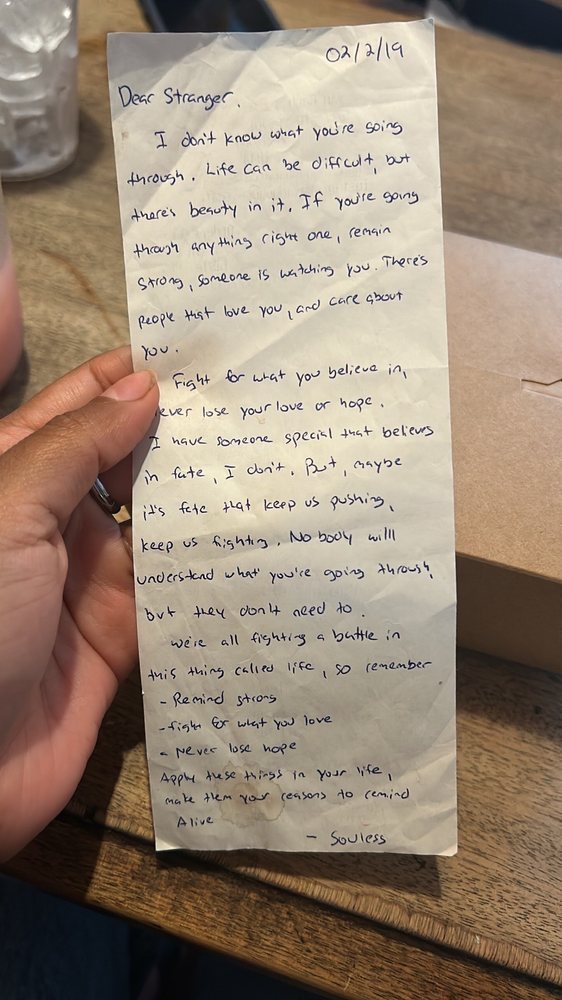 02/2/19
Dear Stranger,
I don't know what you're going
through. Life can be difficult, but
there's beauty in it. If you're going
through anything right one, remain
strong, someone is watching you. There's
people that love you, and care about
you.
Fight for what you believe in,
ever lose your love or hope.
I have someone special that believes
in fate, I don't. But, maybe
it's fate that keep us pushing,
keep us fighting. No body willl
understand what you're going through,
but they don't need to.
we're all fighting a battle in
this thing called life, so remember
- Remind strong
- fight for what you love
- Never lose hope
Apply these things in your life,
make them your reasons to remind
Alive
- Souless